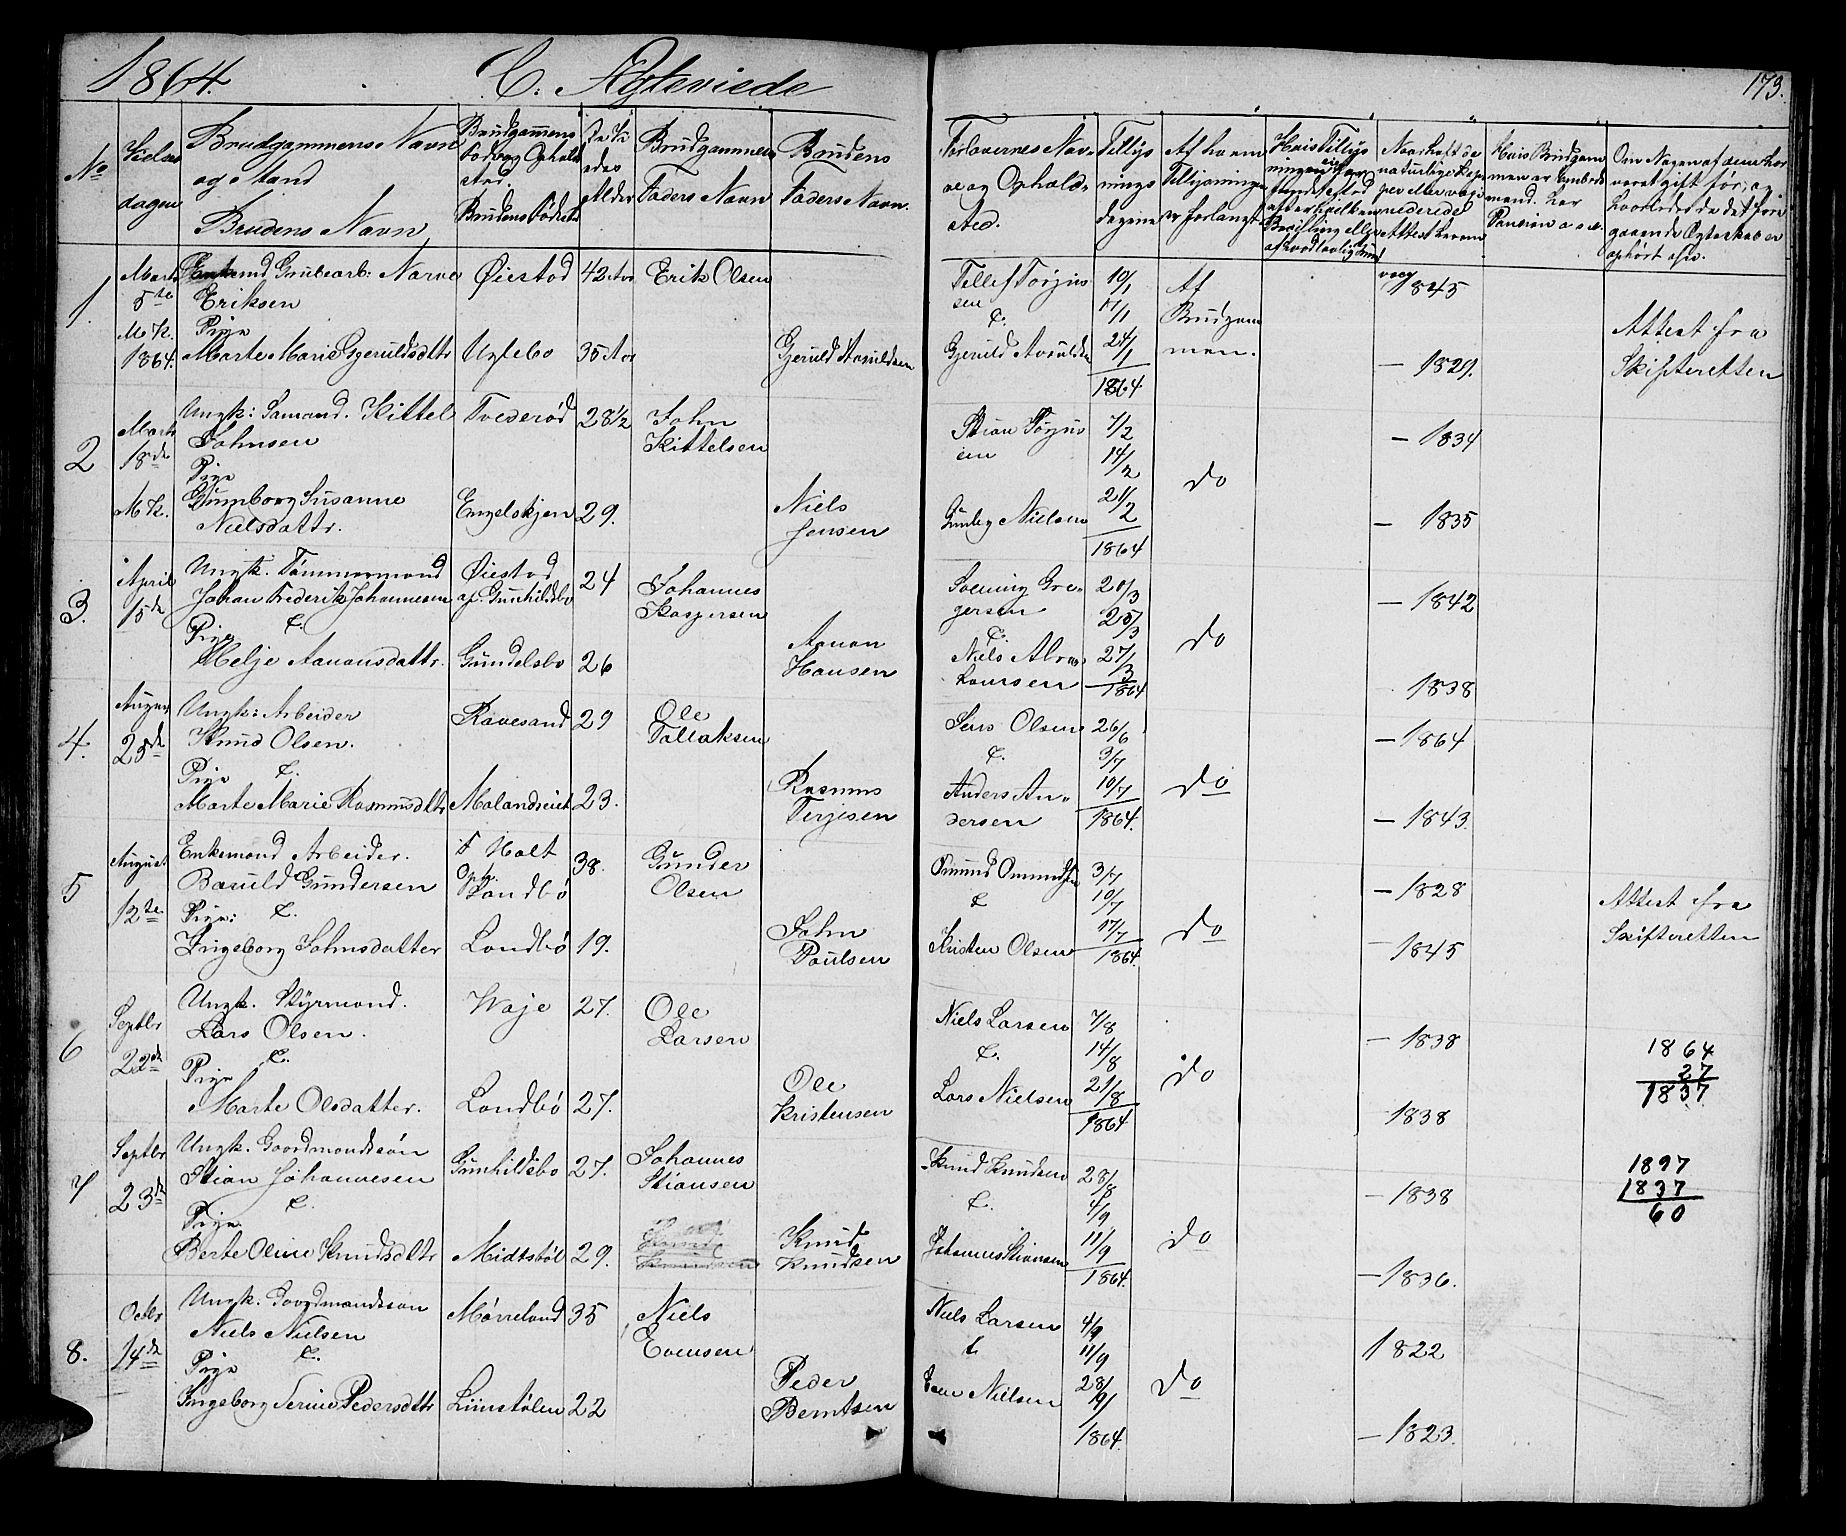 1864.
C. Ægteviede
173.
No
Vielses
dagen
Brudgammens Navn
og Stand
Brudens Navn
Brudgammens
Føde og Ophold
sted.
Brudens Fødested
De Vi
edes
Alder
Brudgammens
Faders Navn
Brudens
Faders Navn.
Forlovernes Nav-
ne og Opholds-
sted.
Tillys
nings
dagene
Af hvem
Tillysningen
er forlangt
Hvis Tillys
ningen ei har
fundet sted
efter hvilken
Bevilling eller
Naar holdt de
naturlige Kop
per eller vagi
nerede
Attest herom
Hvis Brudgam
men er Embeds
mand. har
Pension
Om Nogen af dem har
været gift før, og
hvorledes da det fore
gaaende Ægteskab er
ophørt &c.
1
Marts
5te
M.K.
1864.
Enkemd Grubearb: Narve
Eriksen
Pige
Marte Marie Gjeruldsdttr
Øiestad
Uglebo
42 Aar
35 Aar
Erik Olsen
Gjeruld Aasuldsen
Tellef Torjus
sen
&.
Gjeruld Aasulds
10/1
17/1
24/1
1864
Af
Brudgam
men.
vac 1845
— 1829.
Attest fra
Skifteretten
2
Marts
18de
M.K.
Ungk: Sømand. Kittel
Johnsen
Pige
Gunborg Susanne
Nielsdattr.
Tvederød
Engelskjøn
28 1/2
29.
John
Kittelsen
Niels
Jensen
Stian Torjus
sen
Gunleg Nielsen
7/2
14/2
21/2
1864
do
— 1834
— 1835
3.
April
15de
Ungk. Tømmermand
Johan Frederik Johannesen
Pige &.
Helje Aanonsdattr.
Øiestad
op. Gunhildsbo
Gundelsbo
24
26
Johannes
Kaspersen
Aanon
Hansen
Solning Gre-
gersen
&.
Niels Abra-
hamsen
20/3
25/3
27/3
1864
do
— 1842
1838
4.
August
25de
Ungk: Arbeider
Knud Olsen.
Pige &.
Marte Marie Rasmusdttr
Ravesand
Molandseiet
29
23.
Ole
Tallaksen
Rasmus
Terjesen
Jens Olsen
&.
Anders An-
dersen
26/6
3/7
10/7
1864.
do
— 1864
— 1843
5
August
12te
Enkemand Arbeider.
Baruld Gundersen
Pige: &.
Ingeborg Johnsdatter
F Holt
Oph.
Landbø
Landbø
38.
19.
Gunder
Olsen
John
Poulsen
Omund Omundsen
&
Kristen Olsen
3/7
10/7
17/7
1864.
do
— 1828
— 1845
Attest fra
Skifteretten
6
Septbr
22de
Ungk. Styrmand.
Lars Olsen.
Pige &.
Marte Olsdatter.
Waje
Landbø
27.
27.
Ole
Larsen
Ole
Kristensen
Niels Larsen
&.
Lars Nielsen
7/8
14/8
21/8
1864
do
— 1838
1838
1864
27
1837
7
Septbr
23de
Ungk. Gaardmandssøn
Stian Johannesen
Pige &.
Berte Oline Knudsdttr
Gunhildsbo
Midtsbøl
27.
29.
Johannes
Stiansen
Knud
Knudsen
Knud
Knudsen
Knud Knudsen
&.
Johannes Stiansen
28/8
4/9
11/9
1864.
do
— 1838
— 1836.
1897
1837
60
8.
Octbr
14de
Ungk. Gaardmandssøn
Niels Nielsen
Pige &.
Ingeborg Serine Pedersdttr
Mørreland
Limstølen
35
22
Niels
Evensen
Peder
Berntsen
Niels Larsen
&
Even Nielsen
4/9
11/9
28/9
1864.
do
1822
— 1823.